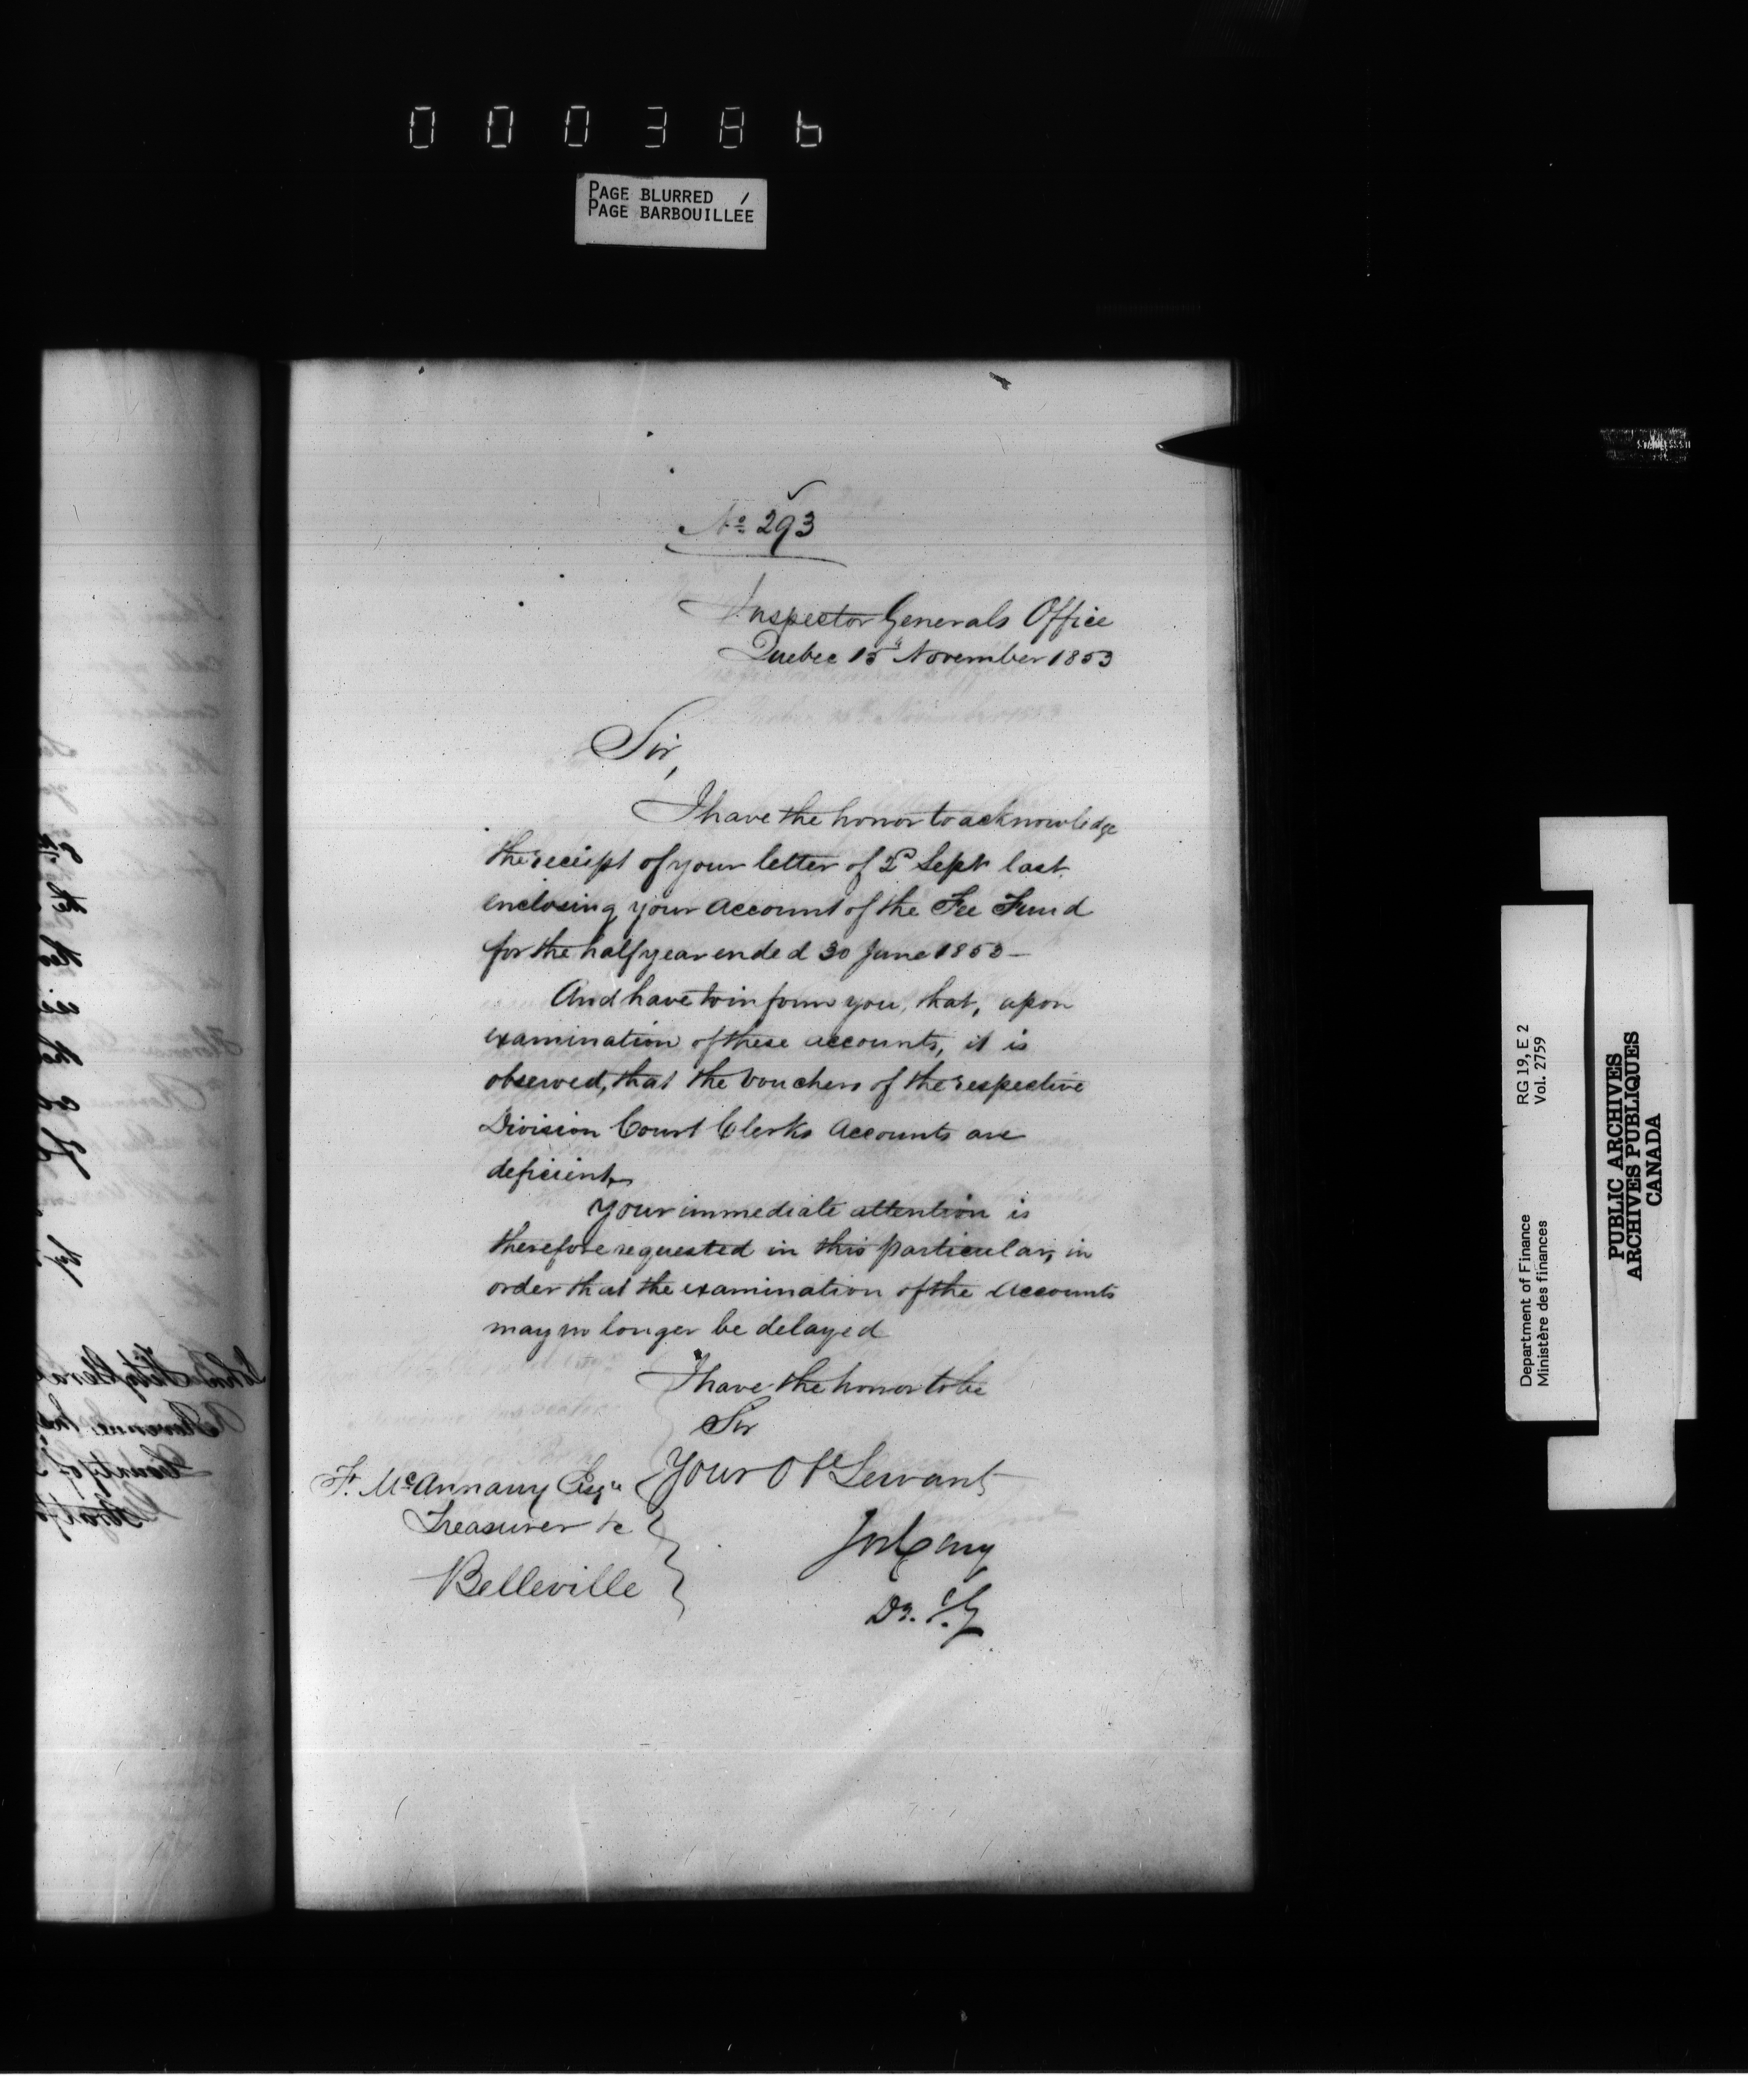 000386
PAGE BLURRED
PAGE BARBOUILLÉE
No 293
Inspector Generals Office
Quebec 15th November 1853
Sir,
I have the honor to acknowledge
the receipt of your letter of 2d Sept last
enclosing your account of the Fee Fund
for the half year ended 30 June 1853 —
And have to inform you, that, upon
examination of these accounts, it is
observed, that the Vouchers of the respective
Division Court Clerks Accounts are
deficient.
Your immediate attention is
therefore requested in this particular, in
order that the examination of the accounts
may no longer be delayed
I have the honor to be
Sir
Your Ot Servant
F. McAnnany Esqr
Treasurer &c
Belleville
Jos Cary
D. I. G
RG 19, E 2
Vol. 2759
Department of Finance
Ministère des finances
PUBLIC ARCHIVES
ARCHIVES PUBLIQUES
CANADA